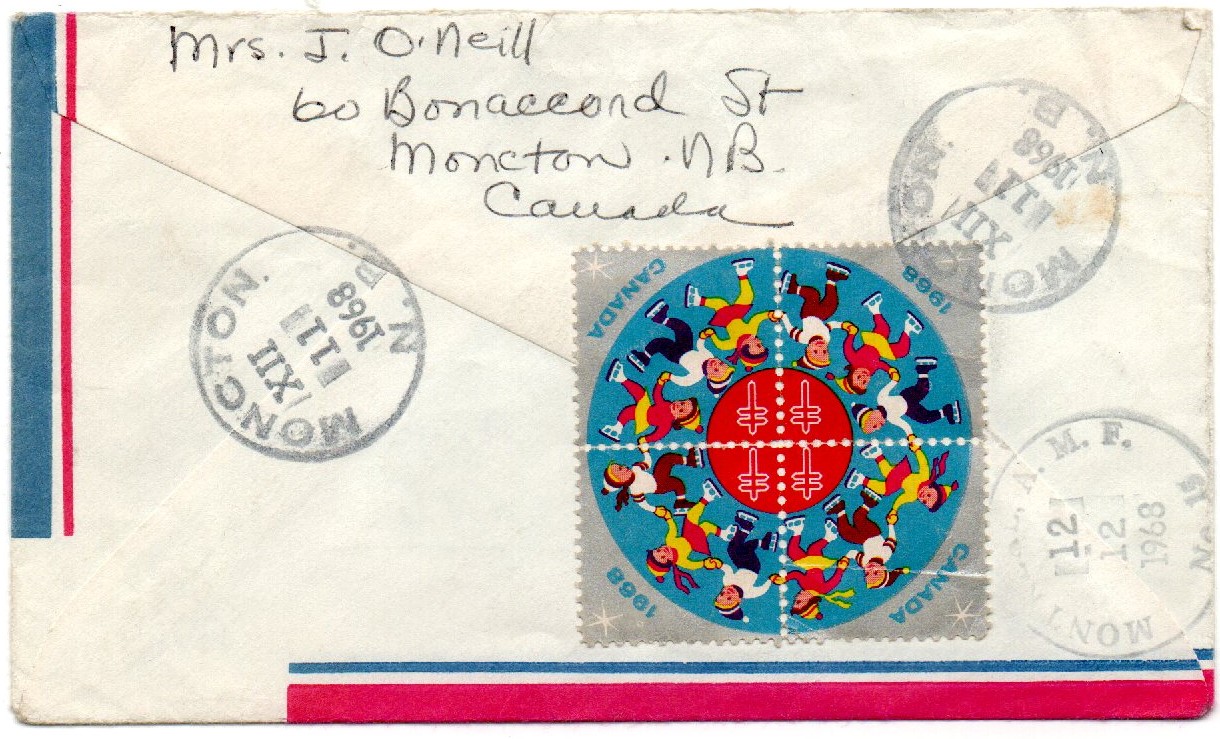 Mrs. J. O'Neill
60 Bonaccord St
Moncton. NB.
Canada
MONCTON.
N. B.
XII
11
1968
MONCTON.
N. B.
XII
11
1968
CANADA
1968
1968
CANADA
MONT A. M. F.
12
12
1968
No 15